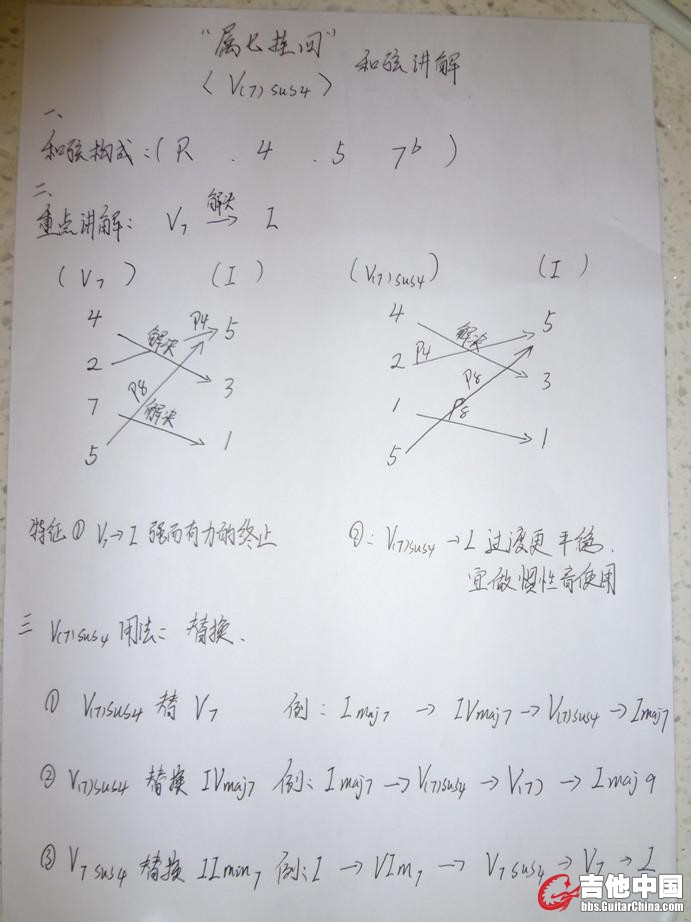 “属七挂四” 和弦讲解
(V(7)sus4)
一、
和弦构成:(R . 4 . 5 7b)
二、
重点讲解: V7 解决→ I
(V7) (I) (V(7)sus4) (I)
4 解决 P4 5 4 解决 5
2 2 P4
P8 3 P8 3
7 解决 1 P8
5 1 5 1
特征 ① V7→I 强而有力的终止 ②: V(7)sus4 → I 过渡更平稳.
宜做惯性音使用
三 V(7)sus4 用法:: 替换.
① V(7)sus4 替 V7 例: Imaj7 → IVmaj7 → V(7)sus4 → Imaj7
② V(7)sus4 替换 IVmaj7 例: Imaj7 → V(7)sus4 → V(7) → Imaj9
③ V7sus4 替换 IImin7 例: I → VIm7 → V7sus4 → V7 → I
吉他中国
bbs.GuitarChina.com